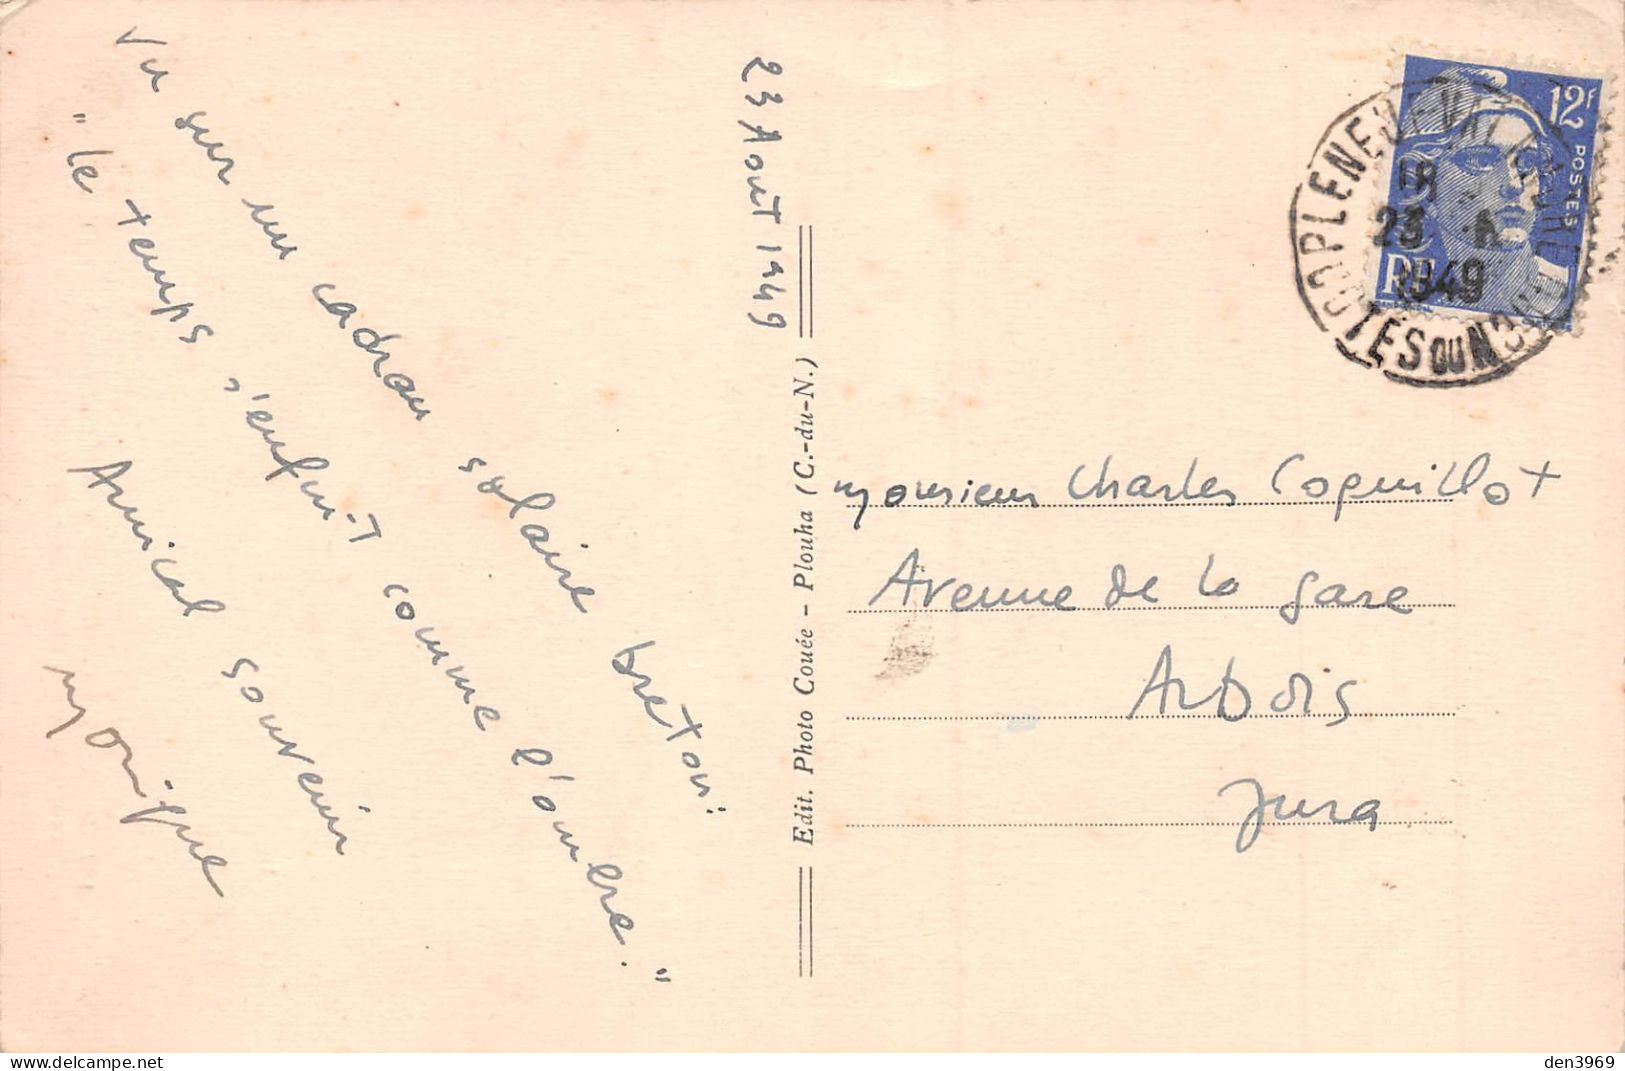 Vu sur un cadran solaire breton:
"le temps s'enfuit comme l'ombre."
Amical souvenir
Monique
23 Aout 1949
Edit. Photo Couée - Plouha (C.-du-N.)
12F
POSTES
RF
PLENEUF VAL ANDRE
18
23 8
1949
COTES DU NORD
Monsieur Charles Coquillot
Avenue de la gare
Arbois
Jura
delcampe.net
den3969